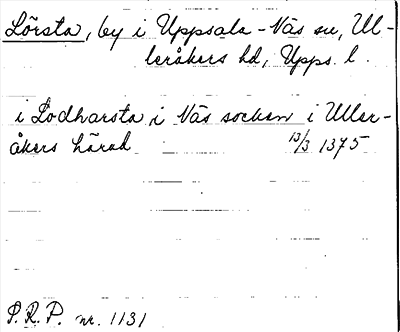 Lörsta, by i Uppsala-Näs sn, Ul-
leråkers hd, Upps. l.
i Lodharsta i Näs socken i Uller-
åkers härad 13/3 1375
P.R.P. nr. 1131